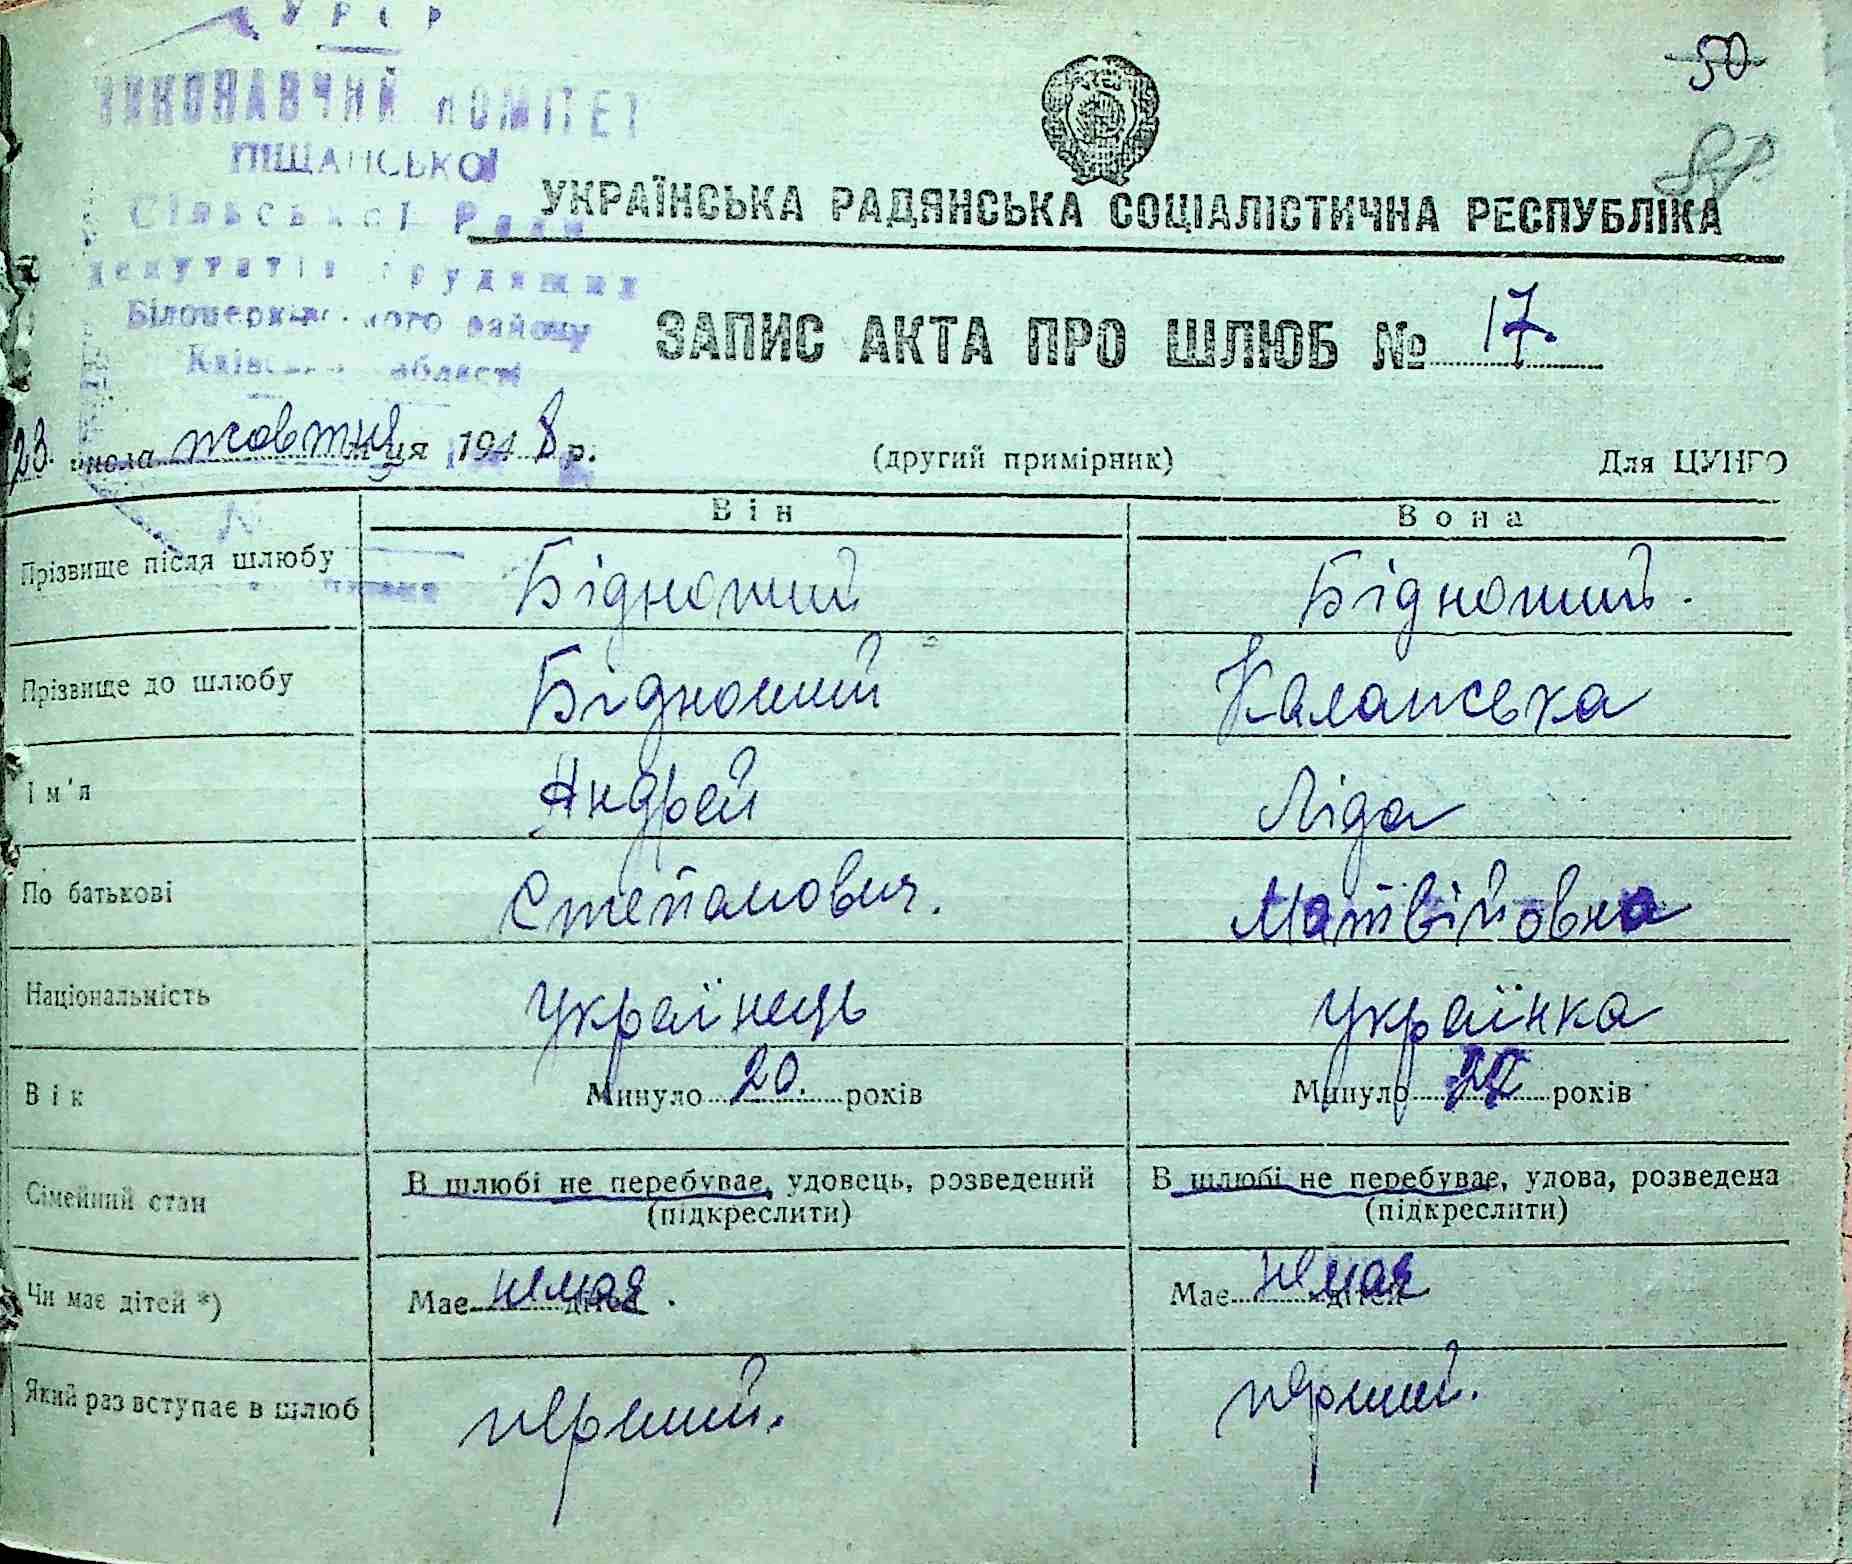 УРСР
50
ВИКОНАВЧИЙ КОМІТЕТ
ПІЩАНСЬКОЇ
Сільської Ради
депутатів трудящих
Білоцерківського району
Київської області
УКРАЇНСЬКА РАДЯНСЬКА СОЦІАЛІСТИЧНА РЕСПУБЛІКА
ЗАПИС АКТА ПРО ШЛЮБ № 17.
23. числа жовтня м-ця 1948 р. (другий примірник) Для ЦУНГО
Він Вона
Прізвище після шлюбу Бідноший Бідноший.
Прізвище до шлюбу Бідноший
Ім'я Андрей Ліда
По батькові Степанович. Матвійовна
Національність Українець Українка
Вік Минуло 20. років Минуло років
Сімейний стан В шлюбі не перебуває, удовець, розведений В шлюбі не перебуває, удова, розведена
(підкреслити) (підкреслити)
Чи має дітей *) Має немає дітей. Має немає дітей
Який раз вступає в шлюб перший. перший.